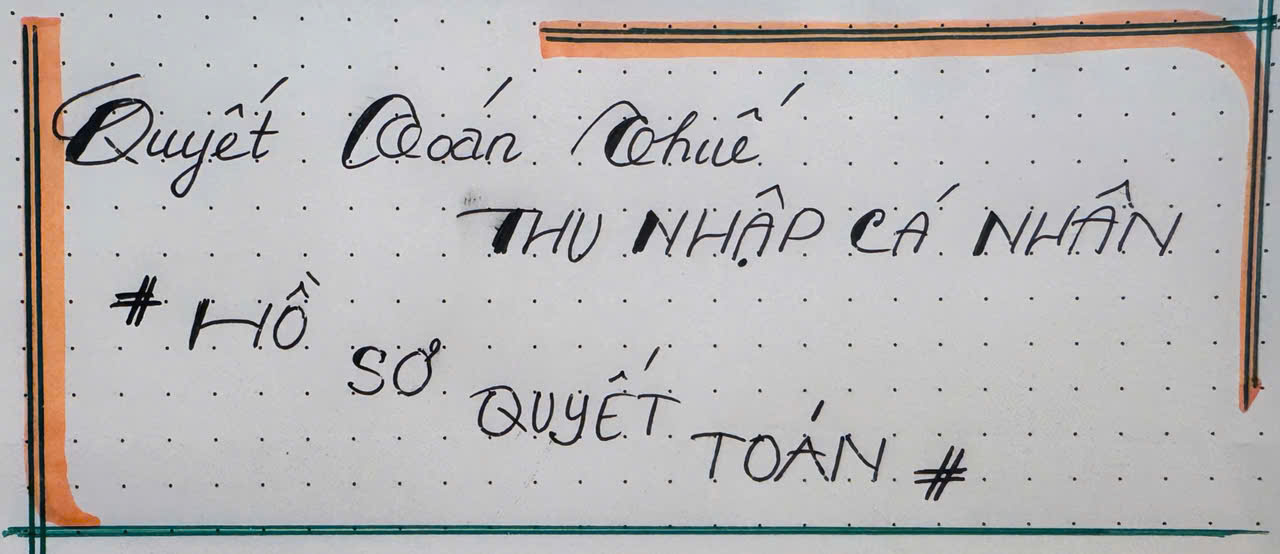 Quyết Toán Thuế
THU NHẬP CÁ NHÂN
# HỒ SƠ QUYẾT TOÁN #